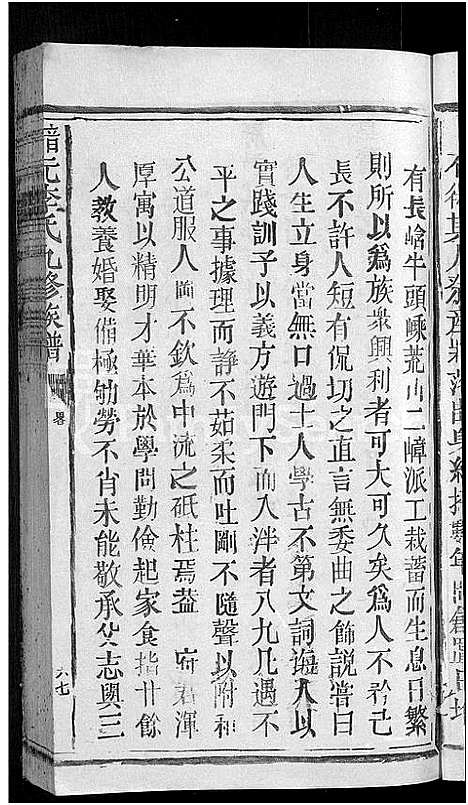 有長峆牛頭嵊荒山二嶂派工栽蓄而生息日繁
則所以爲族衆興利者可大可久矣爲人不矜己
長不許人短有侃切之直言無委曲之餙説嘗曰
人生立身當無口過士人學古不第文詞誨人以
實踐訓子以義方遊門下而入泮者八九凡遇不
平之事據理而諍不茹柔而吐剛不隨聲以附和
公道服人罔不欽爲中流之砥柱焉蓋 府君渾
厚寓以精明才華本於學問勤儉起家食指廿餘
人教養婚娶備極劬勞不肖未能敬承父志與三
李氏九修族譜
畧
六七